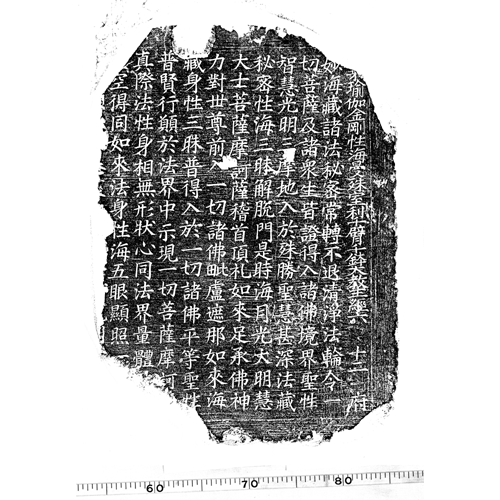 大乘瑜伽金剛性海曼殊室利千臂千鉢大教王經 十二 府
妙海藏諸法秘密常轉不退清淨法輪令一
切菩薩及諸衆生皆證得入諸佛境界聖性
智慧光明三摩地入於殊勝聖慧甚深法藏
秘密性海三昧解脫門是時海月光大明慧
大士菩薩摩訶薩稽首頂礼如來足承佛神
力對世尊前入一切諸佛毗盧遮那如來海
藏身性三昧普得入於一切諸佛平等聖性
普賢行願於法界中示現一切菩薩摩訶
真際法性身相無形狀心同法界量體
空得同如來法身性海五眼顯照
60 70 80